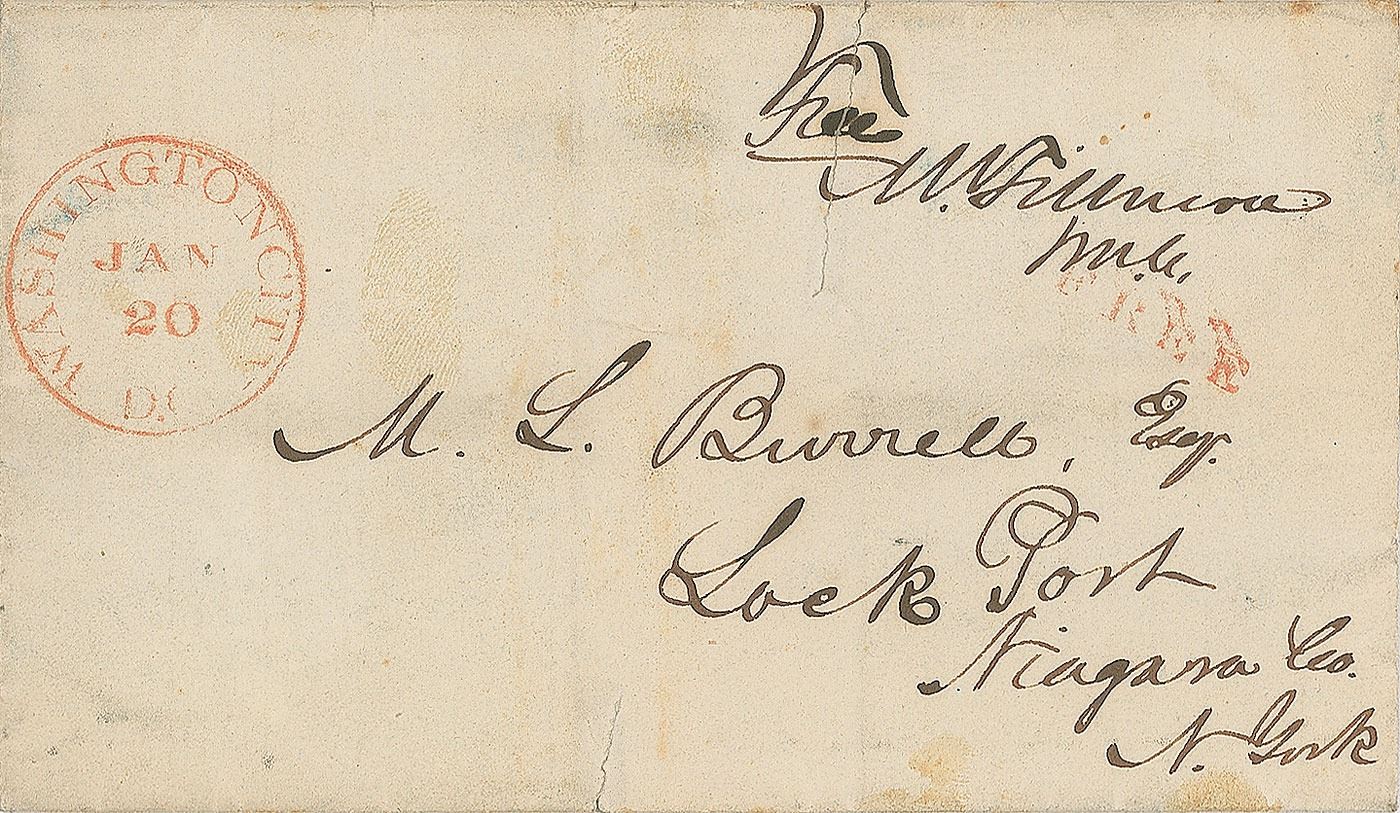 Free
M. Fillmore
M.C.
FREE
WASHINGTON CITY
JAN
20
D.C
M. L. Burrell, Esq.
Lock Port
Niagara Co.
N. York